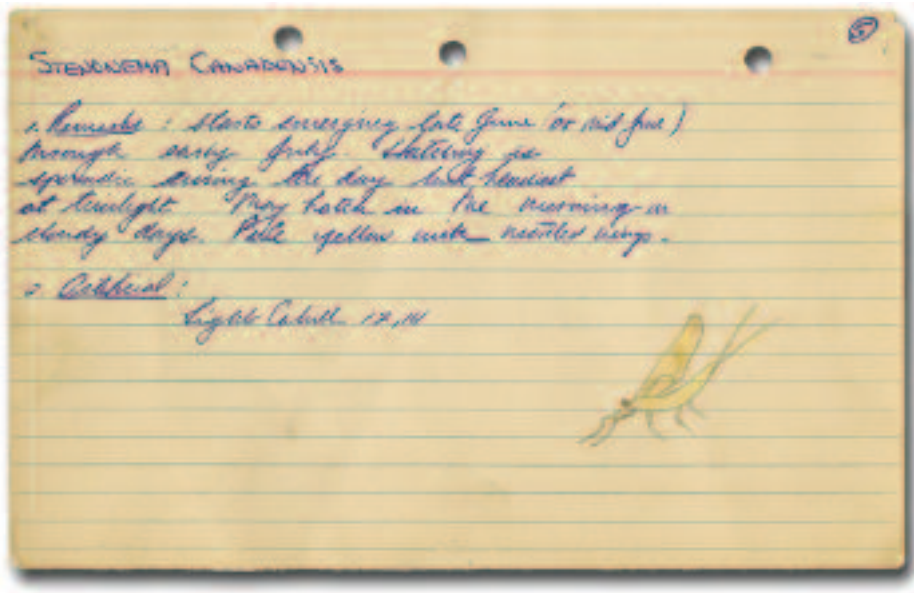 5
STENONEMA CANADENSIS
. Remarks : starts emerging late June (or mid June)
through early July. Hatching is
sporadic during the day but heaviest
at twilight. May hatch in the morning on
cloudy days. Pale yellow with mottled wings.
. Artificial :
Light Cahill 12, 14